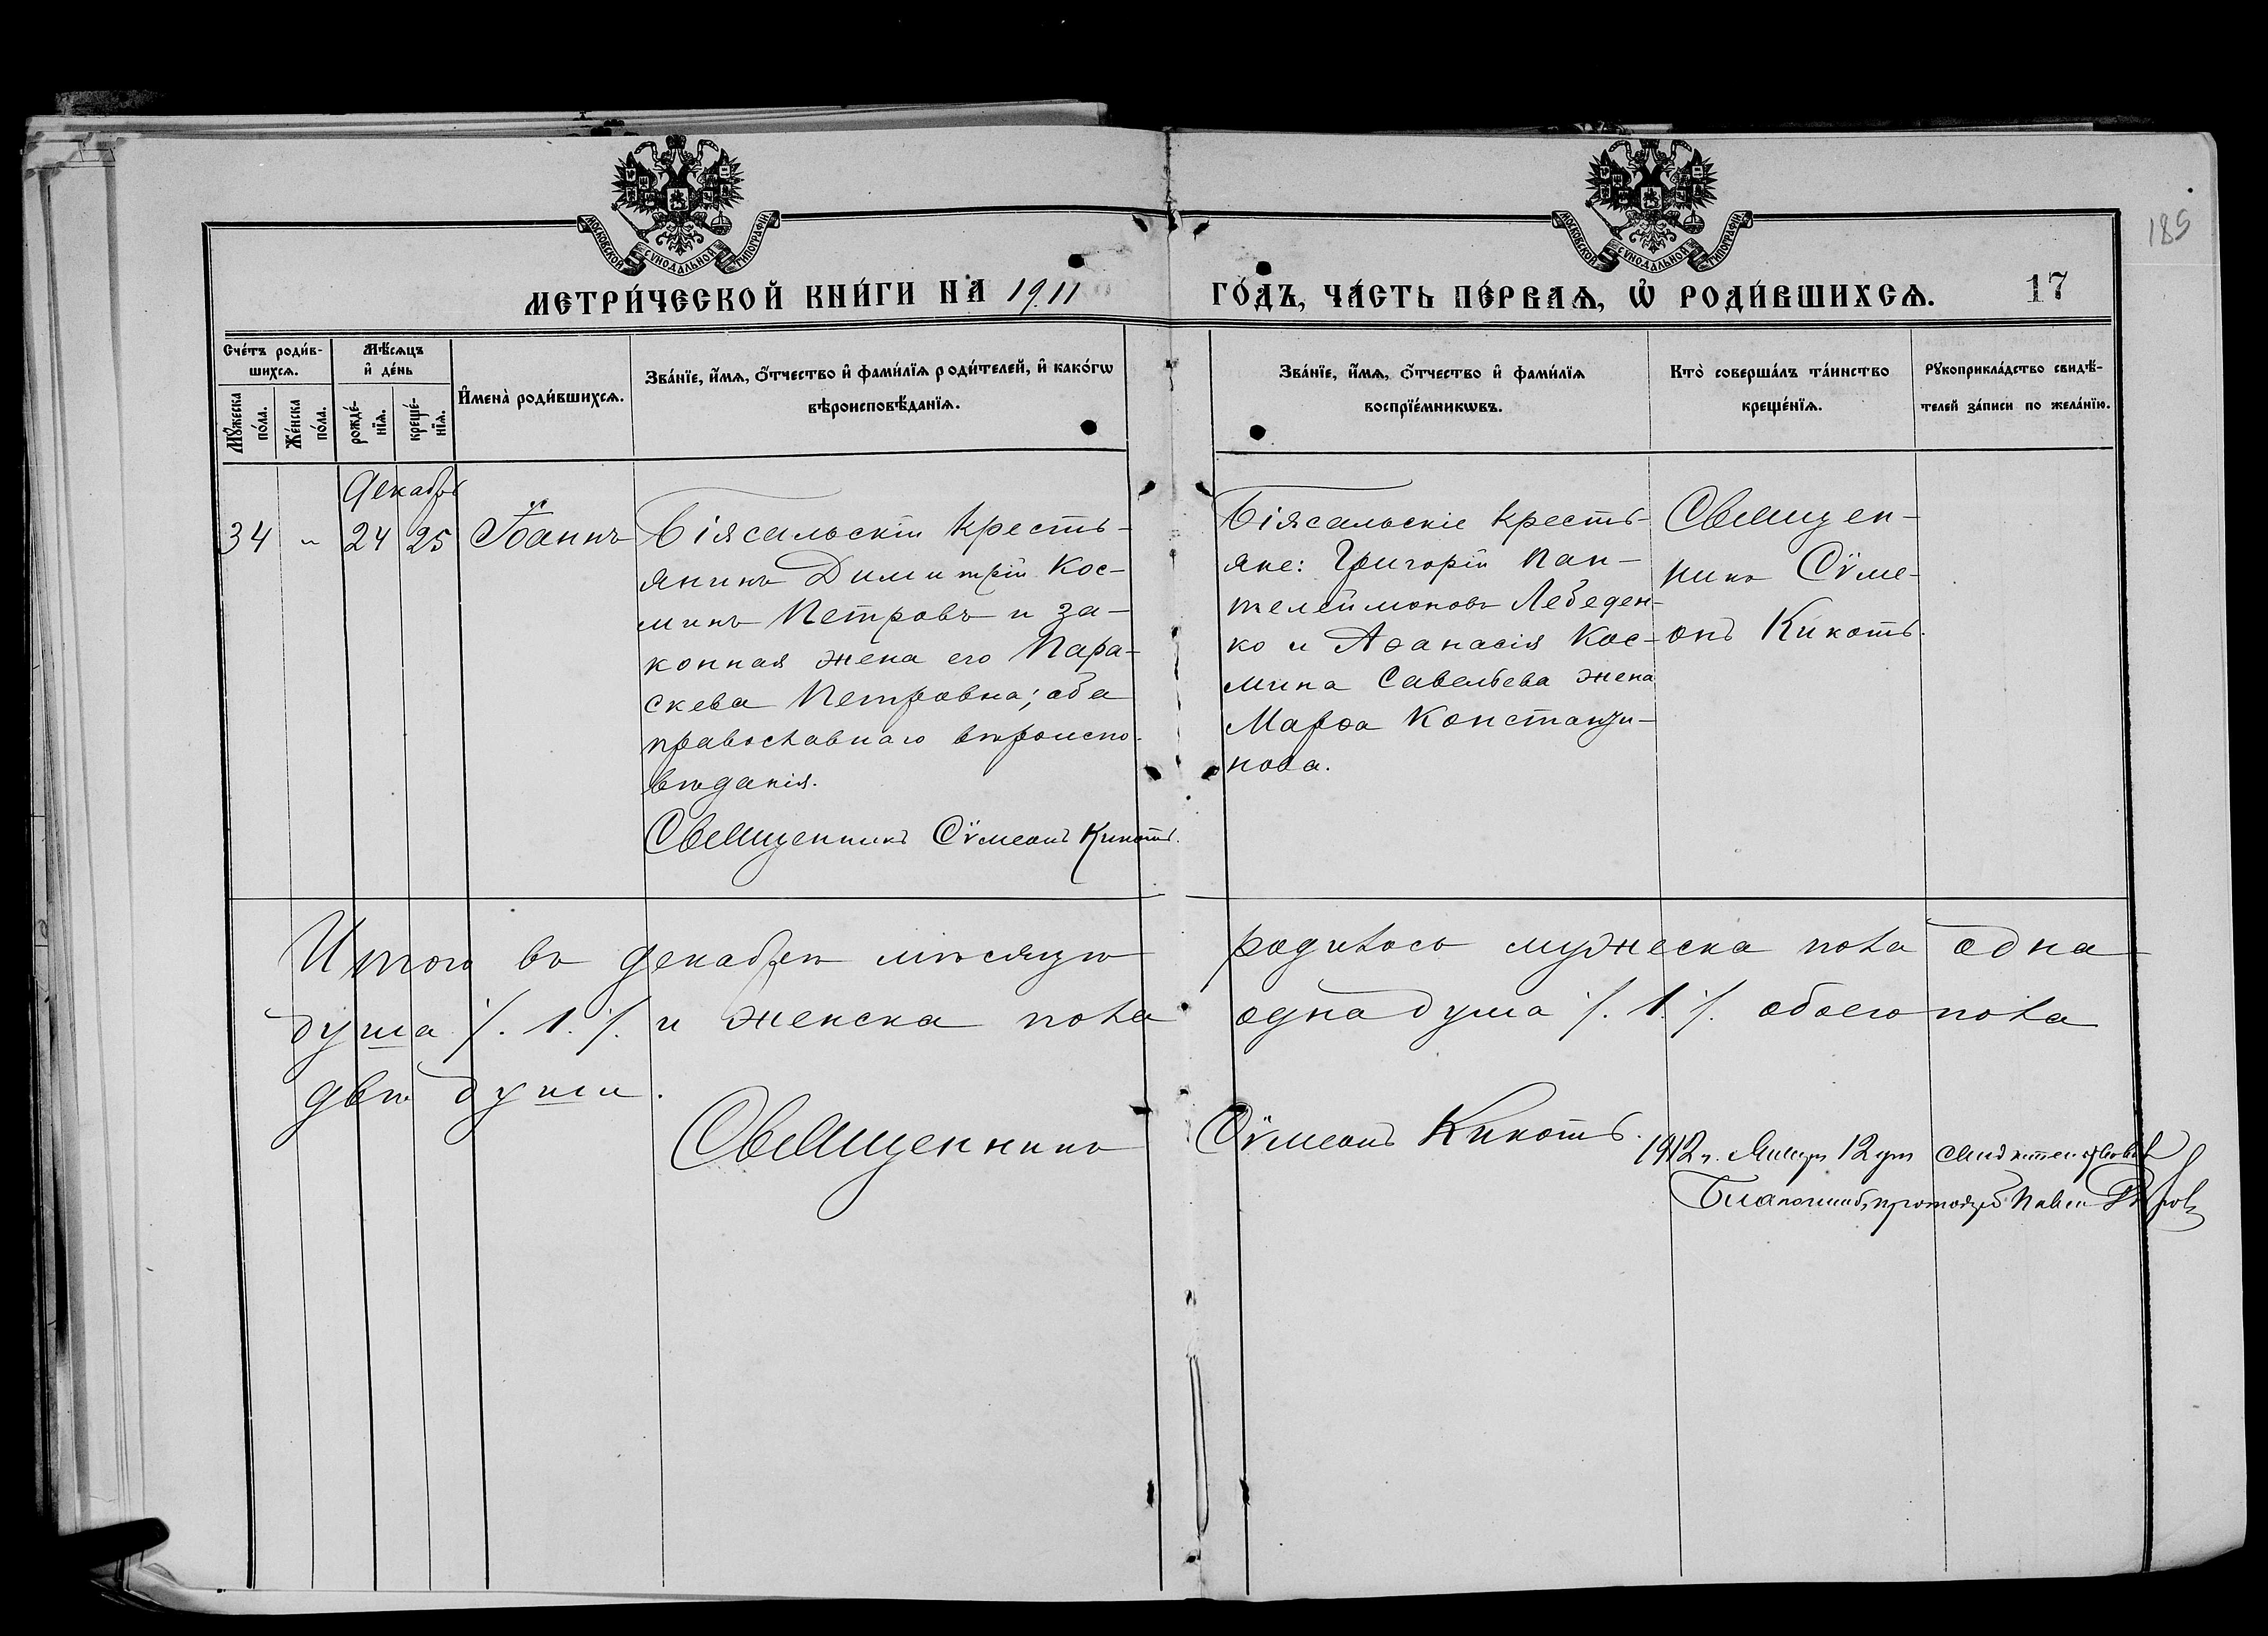 МОСКОВСКОЙ СѴНОДАЛЬНОЙ ТИПОГРАФІИ
МОСКОВСКОЙ СѴНОДАЛЬНОЙ ТИПОГРАФІИ
185
МЕТРИ́ЧЕСКОЙ КНИ́ГИ НА 1911 ГО́ДЪ, ЧА́СТЬ ПЕ́РВАѦ, Ѡ҆ РОДИ́ВШИХСѦ. 17
Сче́тъ роди́в-
шихсѧ.
Мꙋ́жеска по́ла.
Же́нска по́ла.
Мѣ́сѧцъ
и҆ де́нь
рожде́-
нїѧ.
креще́-
нїѧ.
И҆мена̀ роди́вшихсѧ.
Зва́нїе, и҆́мѧ, ѻ҆́тчество и҆ фами́лїѧ роди́телей, и҆ како́гѡ
вѣроисповѣ́данїѧ.
Зва́нїе, и҆́мѧ, ѻ҆́тчество и҆ фами́лїѧ
воспрїе́мникѡвъ.
Кто̀ соверша́лъ та́инство
креще́нїѧ.
Рꙋкоприкла́дство свидѣ́-
телей за́писи по жела́нїю.
Декабрь
34 " 24 25 Іоаннъ
Біясальскій кресть-
янинъ Димитрій Кос-
минъ Петровъ и за-
конная жена его Пара-
скева Петровна; оба
православнаго вѣроиспо-
вѣданія.
Священникъ Сѵмеонъ Кикоть.
Біясальскіе кресть-
яне: Григорій Пан-
телеймоновъ Лебеден-
ко и Аѳанасія Кос-
мина Савельева жена
Марѳа Константи-
нова.
Священ-
никъ Сѵме-
онъ Кикоть.
Итого въ декабрѣ мѣсяцѣ родилось мужеска пола одна
душа /. 1. /. и женска пола одна душа /. 1. /. обоего пола
двѣ души.
Священникъ Сѵмеонъ Кикоть.
1912 г. Января 12 дня